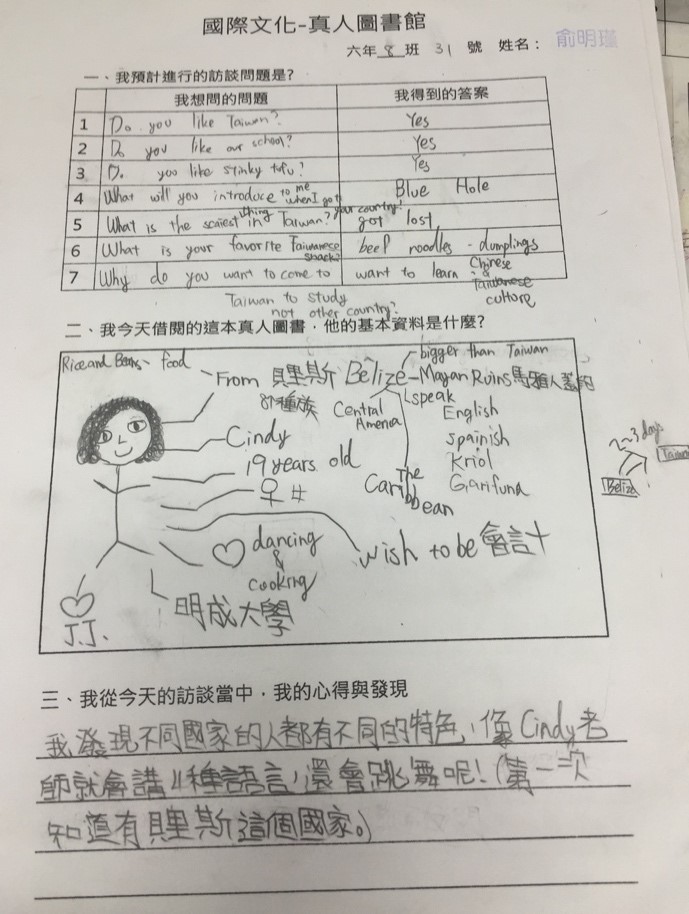 國際文化-真人圖書館
六年 8 班 31 號 姓名： 俞明瑾
一、我預計進行的訪談問題是?
我想問的問題 我得到的答案
1 Do you like Taiwan? Yes
2 Do you like our school? Yes
3 Do you like stinky tofu? Yes
4 What will you introduce to me when I go to your country? Blue Hole
5 What is the scariest thing in Taiwan? got lost
6 What is your favorite Taiwanese snack? beef noodles - dumplings
7 Why do you want to come to Taiwan to study not other country? want to learn Chinese & culture
二、我今天借閱的這本真人圖書，他的基本資料是什麼?
Rice and Beans - food
From 貝里斯 Belize
bigger than Taiwan
Mayan Ruins 馬雅人
speak
English
Spainish
Kriol
Garifuna
種族
Central
The
Caribbean
Cindy
19 years old
♀ 女
♡ dancing
&
cooking
wish to be 會計
明成大學
♡
J.J.
2~3 days
Belize
Taiwan
三、我從今天的訪談當中，我的心得與發現
我發現不同國家的人都有不同的特色，像Cindy老
師就會講4種語言，還會跳舞呢!(第一次
知道有貝里斯這個國家。)